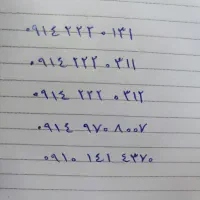 ۰۹۱۴ ۲۲۲ ۰ ۱۳۱
۰۹۱۴ ۲۲۲ ۰ ۳۱۱
۰۹۱۴ ۲۲۲ ۰ ۳۱۲
۰۹۱۴ ۹۷۰ ۸۰۰۷
۰۹۱۰ ۱۴۱ ۴۳۷۰